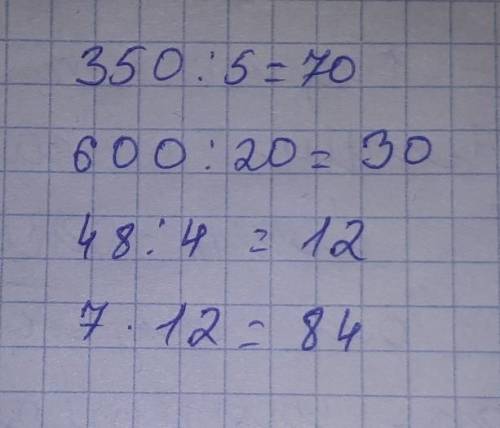 350:5=70
600:20=30
48:4=12
7·12=84